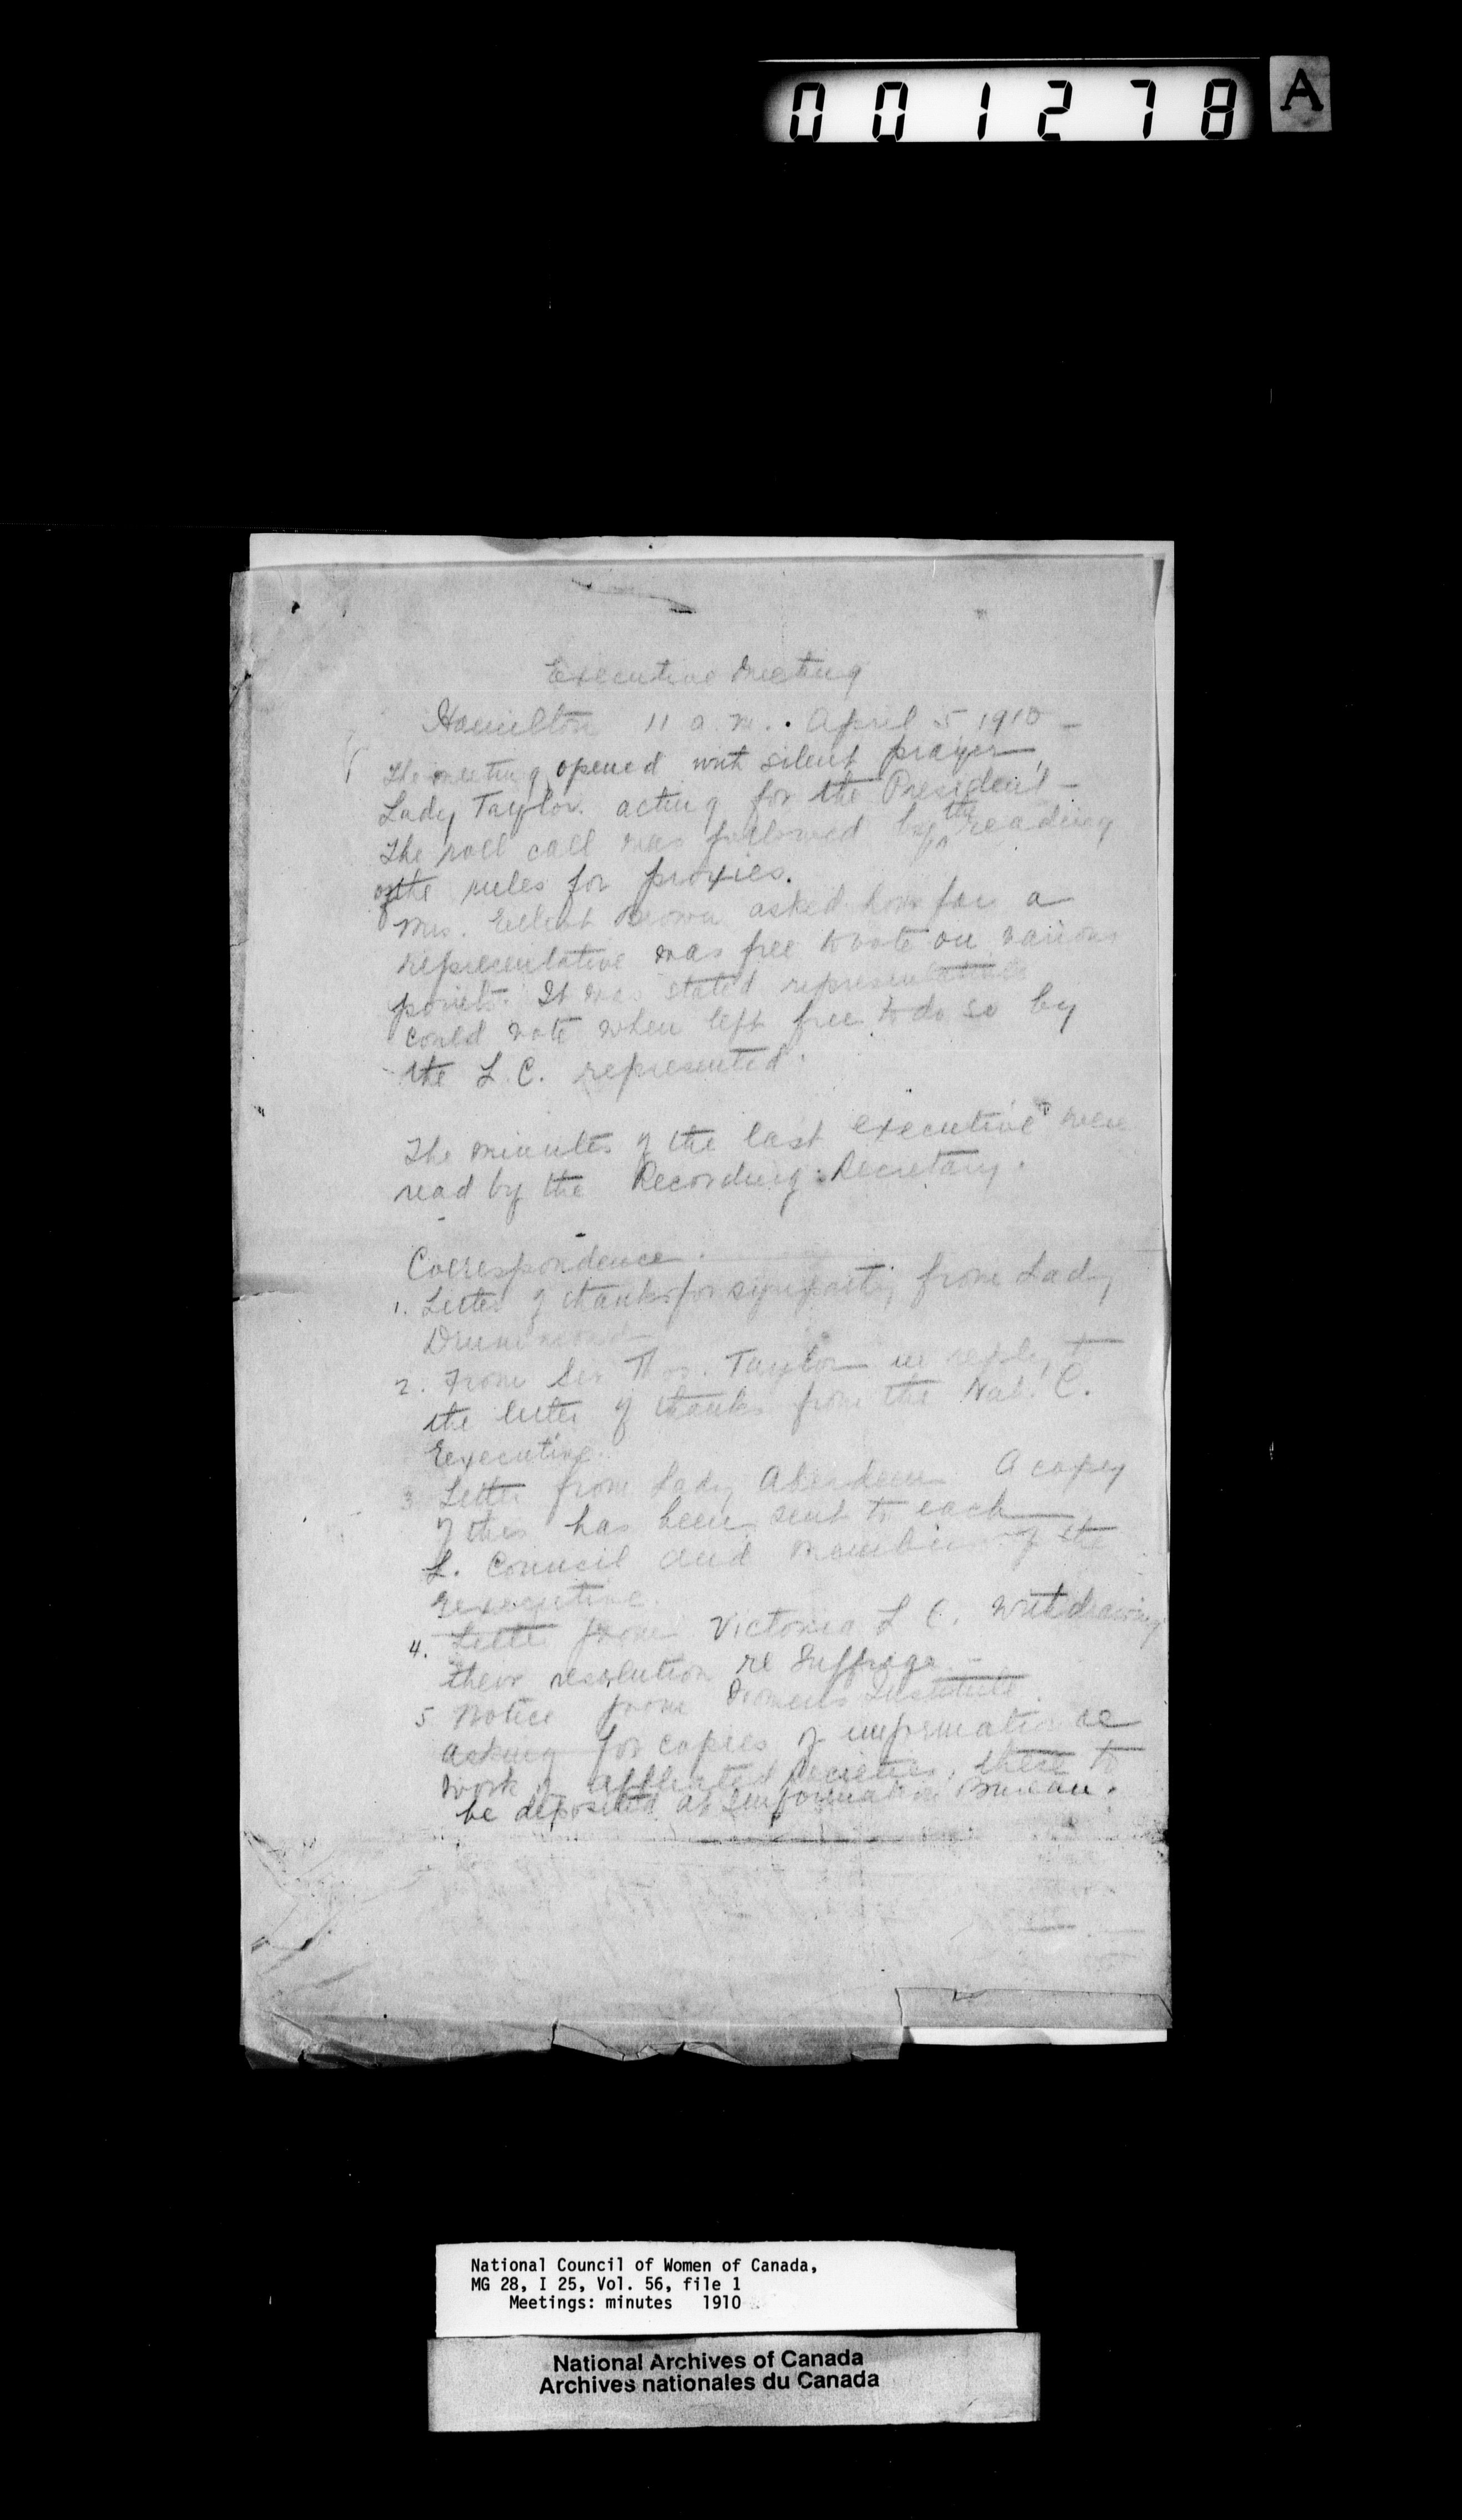 001278 A
Executive Meeting
Hamilton 11 a.m. April 5 1910 -
The meeting opened with silent prayer,
Lady Taylor acting for the President -
The roll call was followed by the reading
of the rules for proxies.
Mrs. Elliott Brown asked how far a
representative was free to vote on various
points. It was stated representatives
could vote when left free to do so by
the L.C. represented.
The minutes of the last executive were
read by the Recording Secretary.
Correspondence.
1. Letter of thanks for sympathy from Lady
Drummond
2. From Sir Thos. Taylor in reply to
the letter of thanks from the Nat. C.
Executive.
3. Letter from Lady Aberdeen A copy
of this has been sent to each
L. Council and members of the
executive.
4. Letter from Victoria L C. withdrawing
their resolution re Suffrage -
5 Notice from Womens Institute
asking for copies of information re
work of affiliated societies, these to
be deposited at Information Bureau.
National Council of Women of Canada,
MG 28, I 25, Vol. 56, file 1
Meetings: minutes 1910
National Archives of Canada
Archives nationales du Canada